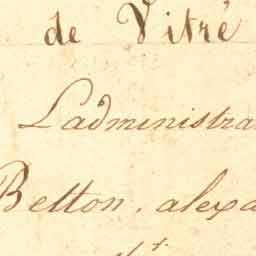 de Vitré
Ladministra
Betton, alexa